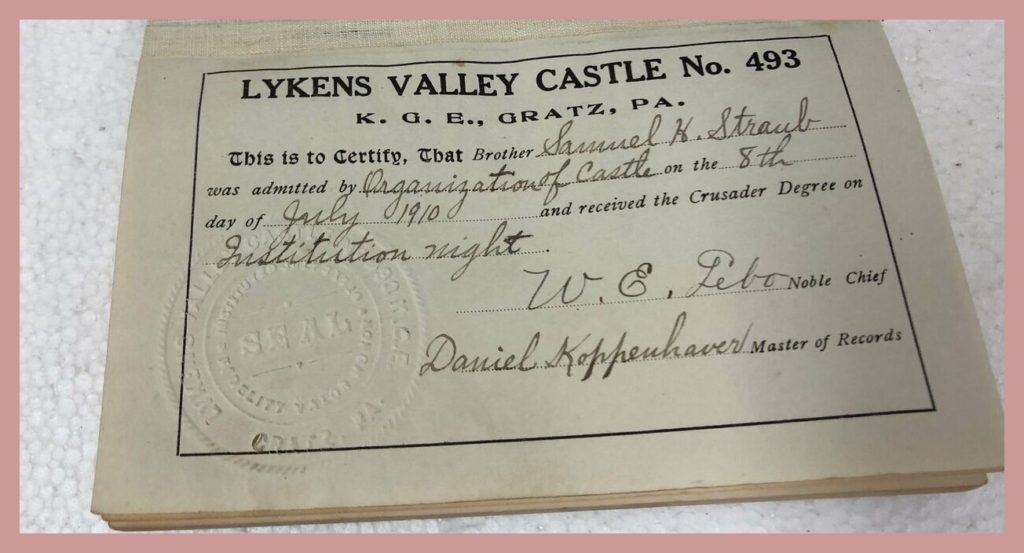 LYKENS VALLEY CASTLE No. 493
K. G. E., GRATZ, PA.
This is to Certify, That Brother Samuel H. Straub
was admitted by Organization of Castle on the 8th
day of July 1910 and received the Crusader Degree on
Institution night.
W. E. Tebo Noble Chief
Daniel Koppenhaver Master of Records
SEAL
GRATZ, PA.